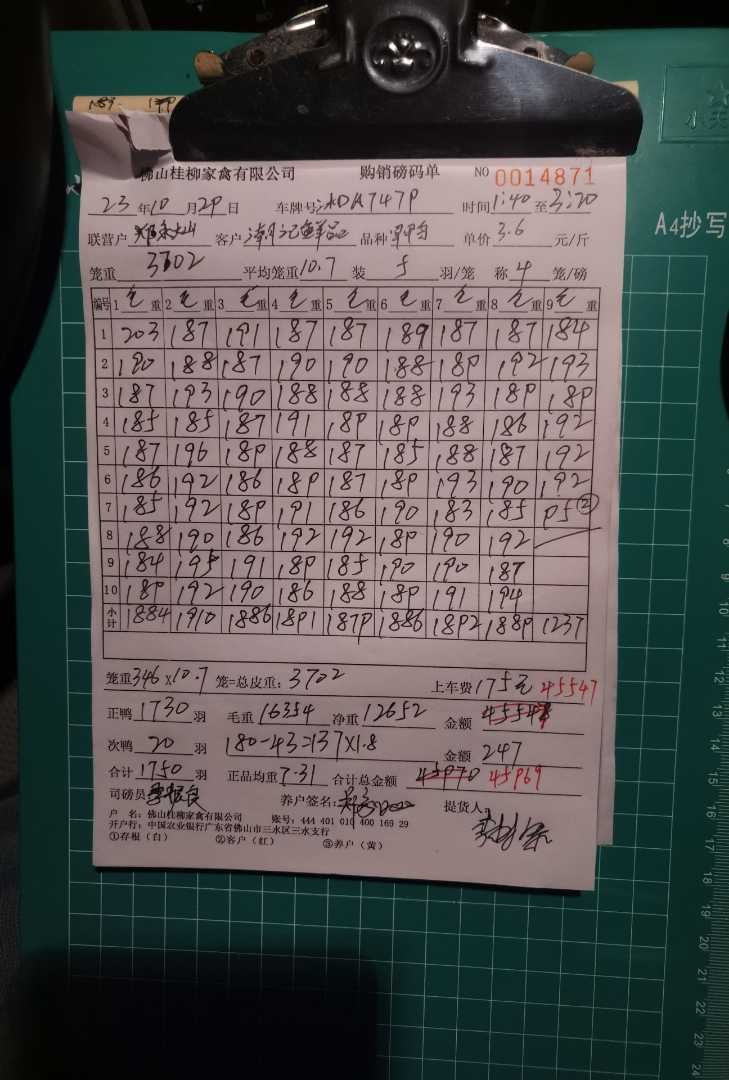 佛山桂柳家禽有限公司 购销磅码单 NO 0014871
23 年 10 月 29 日 车牌号 DA7479 时间 1:40 至 3:20
联营户 客户 品种 单价 3.6 元/斤
笼重 3702 平均笼重 10.7 装 5 羽/笼 称 4 笼/磅
编号 1 毛重 2 毛重 3 毛重 4 毛重 5 毛重 6 毛重 7 毛重 8 毛重 9 毛重
1 203 187 191 187 187 189 187 187 184
2 190 188 187 190 190 188 189 192 193
3 187 193 190 188 188 188 193 189 189
4 185 185 187 191 189 189 188 186 192
5 187 196 189 188 187 185 188 187 192
6 186 192 186 189 187 189 193 190 192
7 185 192 189 191 186 190 183 185 95 ②
8 188 190 186 192 192 189 190 192
9 184 195 191 189 185 190 190 187
10 189 192 190 186 188 189 191 194
小计 1884 1910 1886 1891 1879 1886 1892 1889 1237
笼重 346 x 10.7 笼=总皮重: 3702 上车费 175元 45547
正鸭 1730 羽 毛重 16354 净重 12652 金额
次鸭 20 羽 180-43=137x1.8 金额 247
合计 1750 羽 正品均重 7.31 合计总金额 45970 45969
司磅员 养户签名: 提货人:
户 名: 佛山桂柳家禽有限公司 账号: 444 401 010 400 169 29
开户行: 中国农业银行广东省佛山市三水区三水支行
①存根(白) ②客户(红) ③养户(黄)
A4抄写